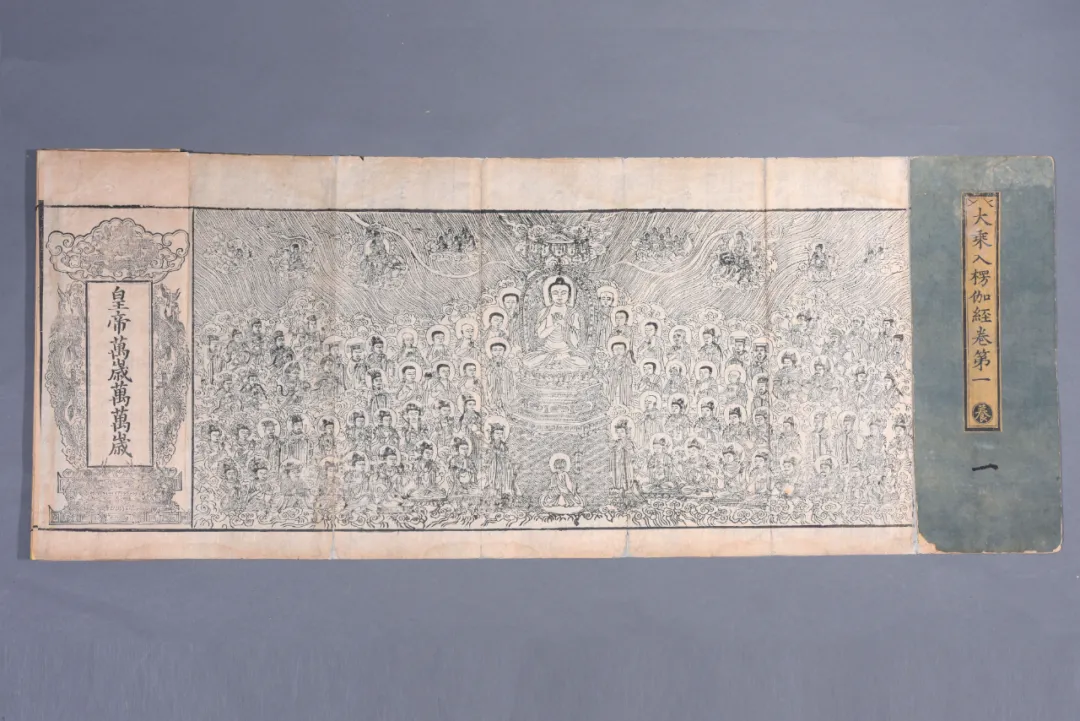 大乘入楞伽經卷第一
一
皇帝萬歲萬萬歲